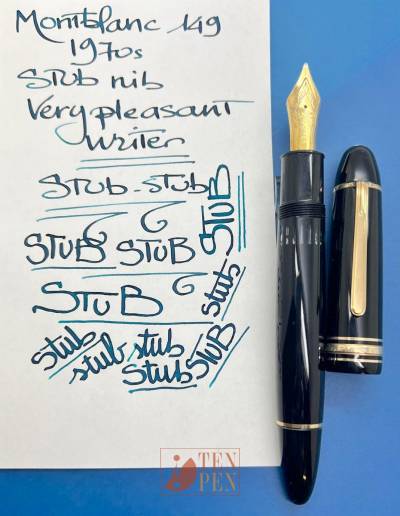 Montblanc 149
1970s
STUB nib
Very pleasant
writer
STUB-STUB
STUB
STUB STUB
STUB
stub
stub stub stub
STUB
Stub
TEN
PEN